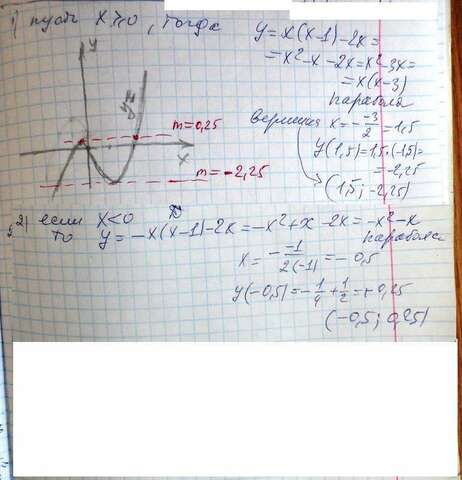 1) пусть x ≥ 0, тогда
y = x(x-1)-2x =
= x²-x-2x = x²-3x =
= x(x-3)
парабола
вершина x = - -3/2 = 1,5
y(1,5) = 1,5·(-1,5) =
= -2,25
(1,5; -2,25)
y
x
m = 0,25
m = -2,25
2) если x<0
то y = -x(x-1)-2x = -x²+x-2x = -x²-x
парабола
x = - -1/2(-1) = -0,5
y(-0,5) = -1/4 + 1/2 = +0,25
(-0,5; 0,25)